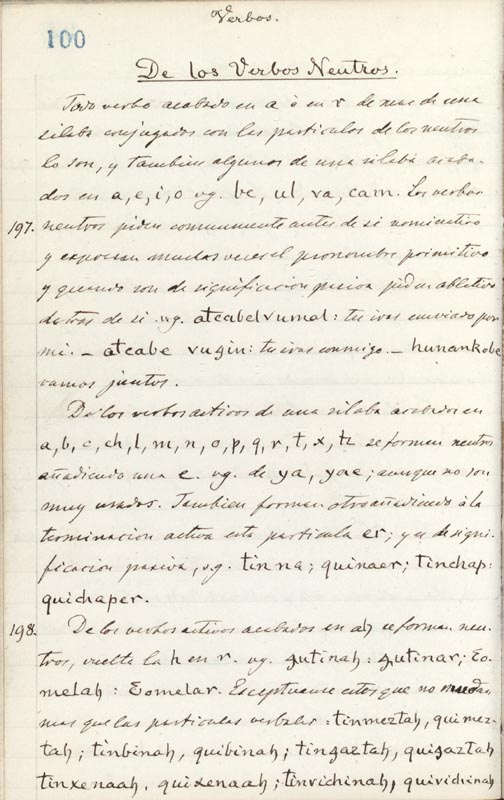 Verbos.
100
De los Verbos Neutros.
Todo verbo acabado en a ò en r de mas de una
silaba conjugados con las particulas de los neutros
lo son, y tambien algunos de una silaba acaba-
dos en a, e, i, o vg. be, ul, va, cam. Los verbos
197. neutros piden comunmente antes de si nominativo
y expresan muchas veces el pronombre primitivo
y quando son de significacion pasiva piden ablativo
detras de si vg. atcabelvumal: tu ivas enviado por
mi. – atcabe vugin: tu ivas conmigo. – hunankobe
vamos juntos.
De los verbos activos de una silaba acabados en
a, b, c, ch, l, m, n, o, p, q, r, t, x, tz se forman neutros
añadiendo una e. vg. de ya, yae; aunque no son
muy usados. Tambien forman otro añadiendo à la
terminacion activa esta particula er; y es de signi-
ficacion pasiva, vg. tinna; quinaer; tinchap:
quichaper.
198. De los verbos activos acabados en ah se forman neu-
tros, vuelta la h en r. vg. gutinah: gutinar; Eo-
melah: Eomelar. Exceptuanse estos que no mudan
mas que las particulas verbales: tinmeztah, quimez-
tah; tinbinah, quibinah; tingaztah, quigaztah
tinxenaah, quixenaah; tinvichinah, quivichinah